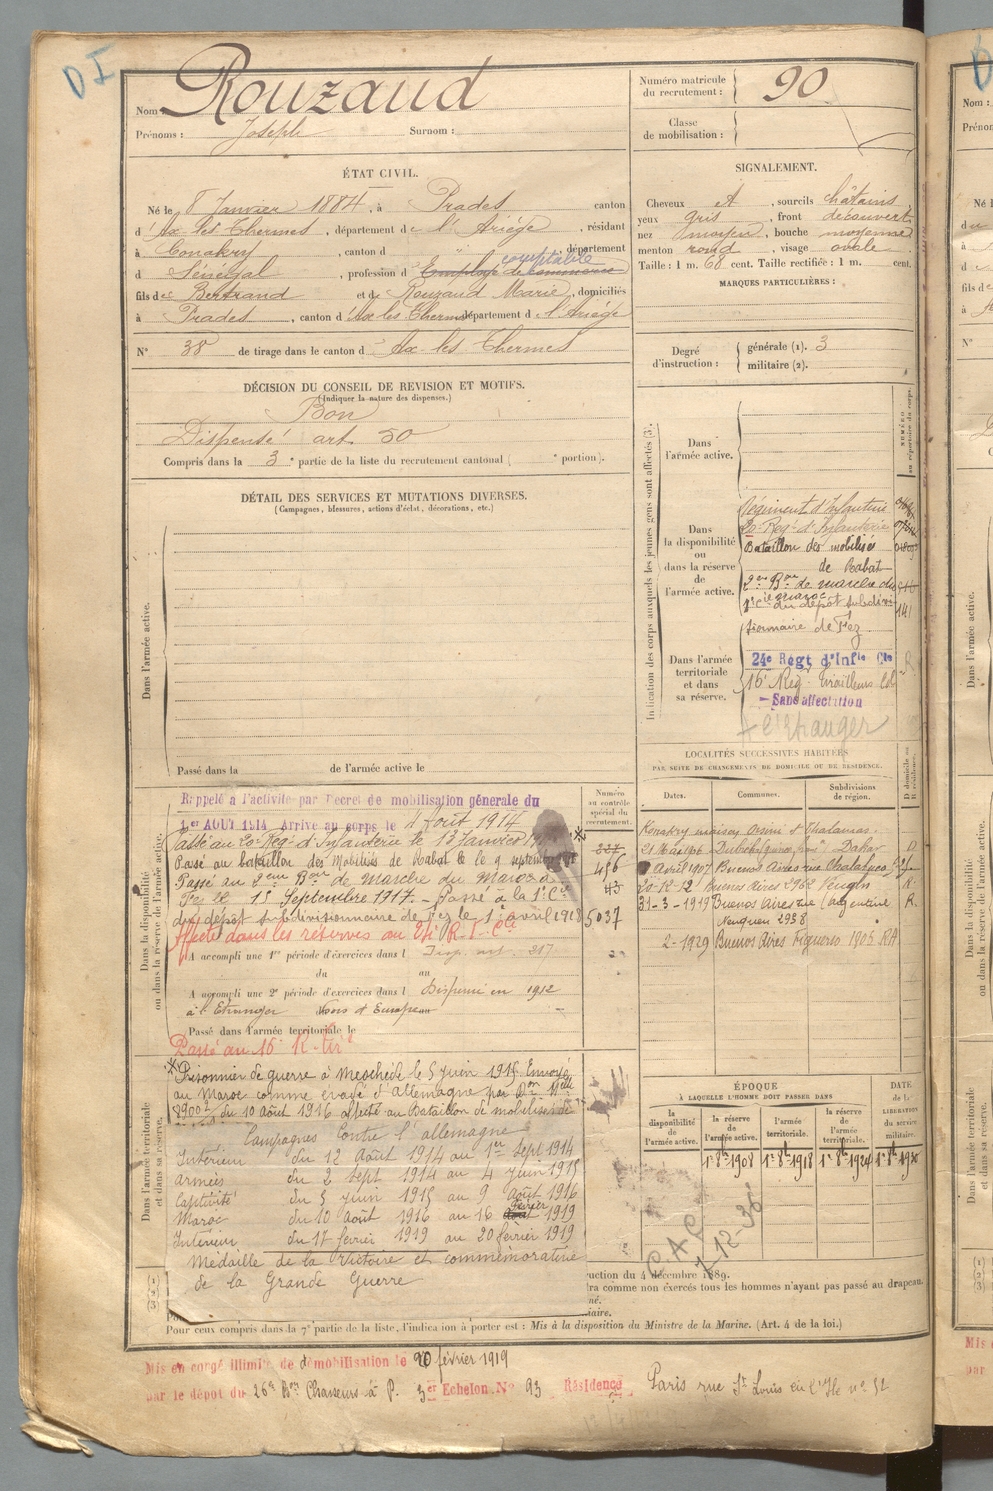 D I
Nom : Rouzaud
Prénoms : Joseph Surnom :
Numéro matricule du recrutement : 90
Classe de mobilisation :
ÉTAT CIVIL.
Né le 8 Janvier 1884, à Prades canton
d'Ax les Thermes, département de l'Ariège, résidant
à Conakry, canton d " , département
d Sénégal, profession d Employé de commerce comptable
fils de Bertrand et de Rouzaud Marie, domiciliés
à Prades, canton d'Ax les Thermes, département d l'Ariège
N° 38 de tirage dans le canton d'Ax les Thermes
SIGNALEMENT.
Cheveux et , sourcils châtains
yeux gris , front découvert
nez moyen , bouche moyenne
menton rond , visage ovale
Taille : 1 m. 68 cent. Taille rectifiée : 1 m. cent.
MARQUES PARTICULIÈRES :
Degré d'instruction : générale (1). 3
militaire (2).
DÉCISION DU CONSEIL DE REVISION ET MOTIFS.
(Indiquer la nature des dispenses.)
Bon
Dispensé art. 50
Compris dans la 3e partie de la liste du recrutement cantonal ( e portion).
DÉTAIL DES SERVICES ET MUTATIONS DIVERSES.
(Campagnes, blessures, actions d'éclat, décorations, etc.)
Dans l'armée active.
Passé dans la de l'armée active le
Indication des corps auxquels les jeunes gens sont affectés (3).
NUMÉRO au répertoire du corps.
Dans l'armée active.
Dans la disponibilité ou dans la réserve de l'armée active.
Régiment d'Infanterie
20e Régt d'Infanterie
Bataillon des mobilisés
de Rabat
2eme Bon de marche du
Maroc
1e Cie du dépôt subdivi
sionnaire de Fez
141
Dans l'armée territoriale et dans sa réserve.
24e Régt d'Infie Cle
16e Rég. Tirailleurs Col
- Sans affectation
à l'étranger
Rappelé à l'activité par Décret de mobilisation générale du
1er AOUT 1914 Arrive au corps le 12 Août 1914
Passé au 20e Régt d'Infanterie le 13 Janvier
Passé au bataillon des Mobilisés de Rabat le 9 septembre
Passé au 2eme Bon de Marche du Maroc à
Fez le 15 Septembre 1917. - Passé à la 1e Cie
du dépôt subdivisionnaire de Fez le 1er avril 1918
Affecté dans les réserves au 24e R. I. Cle
Numéro au contrôle spécial du recrutement.
227
456
43
5037
Dans la disponibilité ou dans la réserve de l'armée active.
A accompli une 1re période d'exercices dans l Disp. art. 217
du au
A accompli une 2e période d'exercices dans l Dispensé en 1912
à l'Etranger Hors d'Europe au
Passé dans l'armée territoriale le
Passé au 16e R. Tirs
Dans l'armée territoriale et dans sa réserve.
Prisonnier de guerre à Meschede le 5 juin 1915. Envoyé
au Maroc comme évadé d'allemagne par Don Mlle
8900 2/ du 10 août 1916 affecté au Bataillon de mobilisés de
Campagnes Contre l'allemagne
Intérieur du 12 Août 1914 au 1er Sept 1914
armées du 2 sept 1914 au 4 juin 1915
Captivité du 5 juin 1915 au 9 Août 1916
Maroc du 10 Août 1916 au 16 août février 1919
Intérieur du 17 février 1919 au 20 février 1919
Médaille de la Victoire et commémorative
de la Grande Guerre
LOCALITÉS SUCCESSIVES HABITÉES
PAR SUITE DE CHANGEMENTS DE DOMICILE OU DE RÉSIDENCE.
Dates. Communes. Subdivisions de région. D domicile ou R résidence.
Konakry maison Orsini et Thalamas.
21 Mai 1906 Dakar D
Avril 1907 Buenos Aires rue
20-12-12 Buenos Aires 2962 Neuquen R.
31-3-1919 Buenos Aires rue (argentine R.
Neuquen 2938
2-1929 Buenos Aires Figueroa 1805 RA
ÉPOQUE
À LAQUELLE L'HOMME DOIT PASSER DANS
la disponibilité de l'armée active.
la réserve de l'armée active. 1er 8bre 1908
l'armée territoriale. 1er 8bre 1918
la réserve de l'armée territoriale. 1er 8bre 1924
DATE de la LIBÉRATION du service militaire. 1er 8bre
C A C
7-12-36
(1)
(2)
(3)
uction du 4 décembre 1889.
ra comme non exercés tous les hommes n'ayant pas passé au drapeau.
né.
iaire.
Pour ceux compris dans la 7e partie de la liste, l'indication à porter est : Mis à la disposition du Ministre de la Marine. (Art. 4 de la loi.)
Mis en congé illimité de démobilisation le 20 février 1919
par le dépôt du 26e Bon Chasseurs à P. 3er Echelon. N° 93 Résidence Paris rue St Louis en l'Ile n° 51